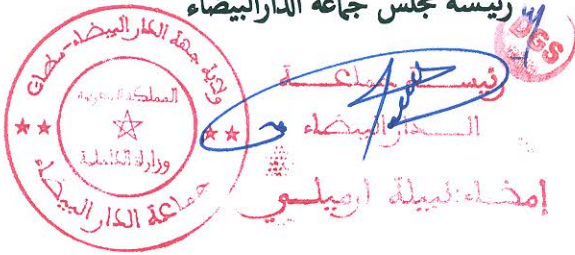 رئيسة مجلس جماعة الدارالبيضاء
DGS
ولاية جهة الدار البيضاء - سطات
المملكة المغربية
وزارة الداخلية
جماعة الدار البيضاء
رئيسة جماعة
الدار البيضاء
إمضاء: نبيلة ارميلي